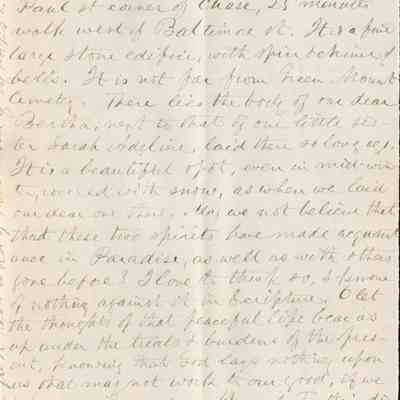 Paul st corner of Chase, 25 minutes
walk west of Baltimore st. It is a fine
large stone edifice, with spire & chime of
bells. It is not far from Green Mount
Cemetry. There lies the body of our dear
Bertha, next to that of our little sis-
ter Sarah Adeline, laid there so long ago.
It is a beautiful spot, even in mid-win-
ter, covered with snow, as when we laid
our dear one there. May we not believe that
that these two spirits have made acquaint
ance in Paradise, as well as with others
gone before? I love to think so, & know
of nothing against it in Scripture. O let
the thoughts of that peaceful life bear us
up under the trials & burdens of the pres-
ent, knowing that God lays nothing upon
us that may not work to our good, if we